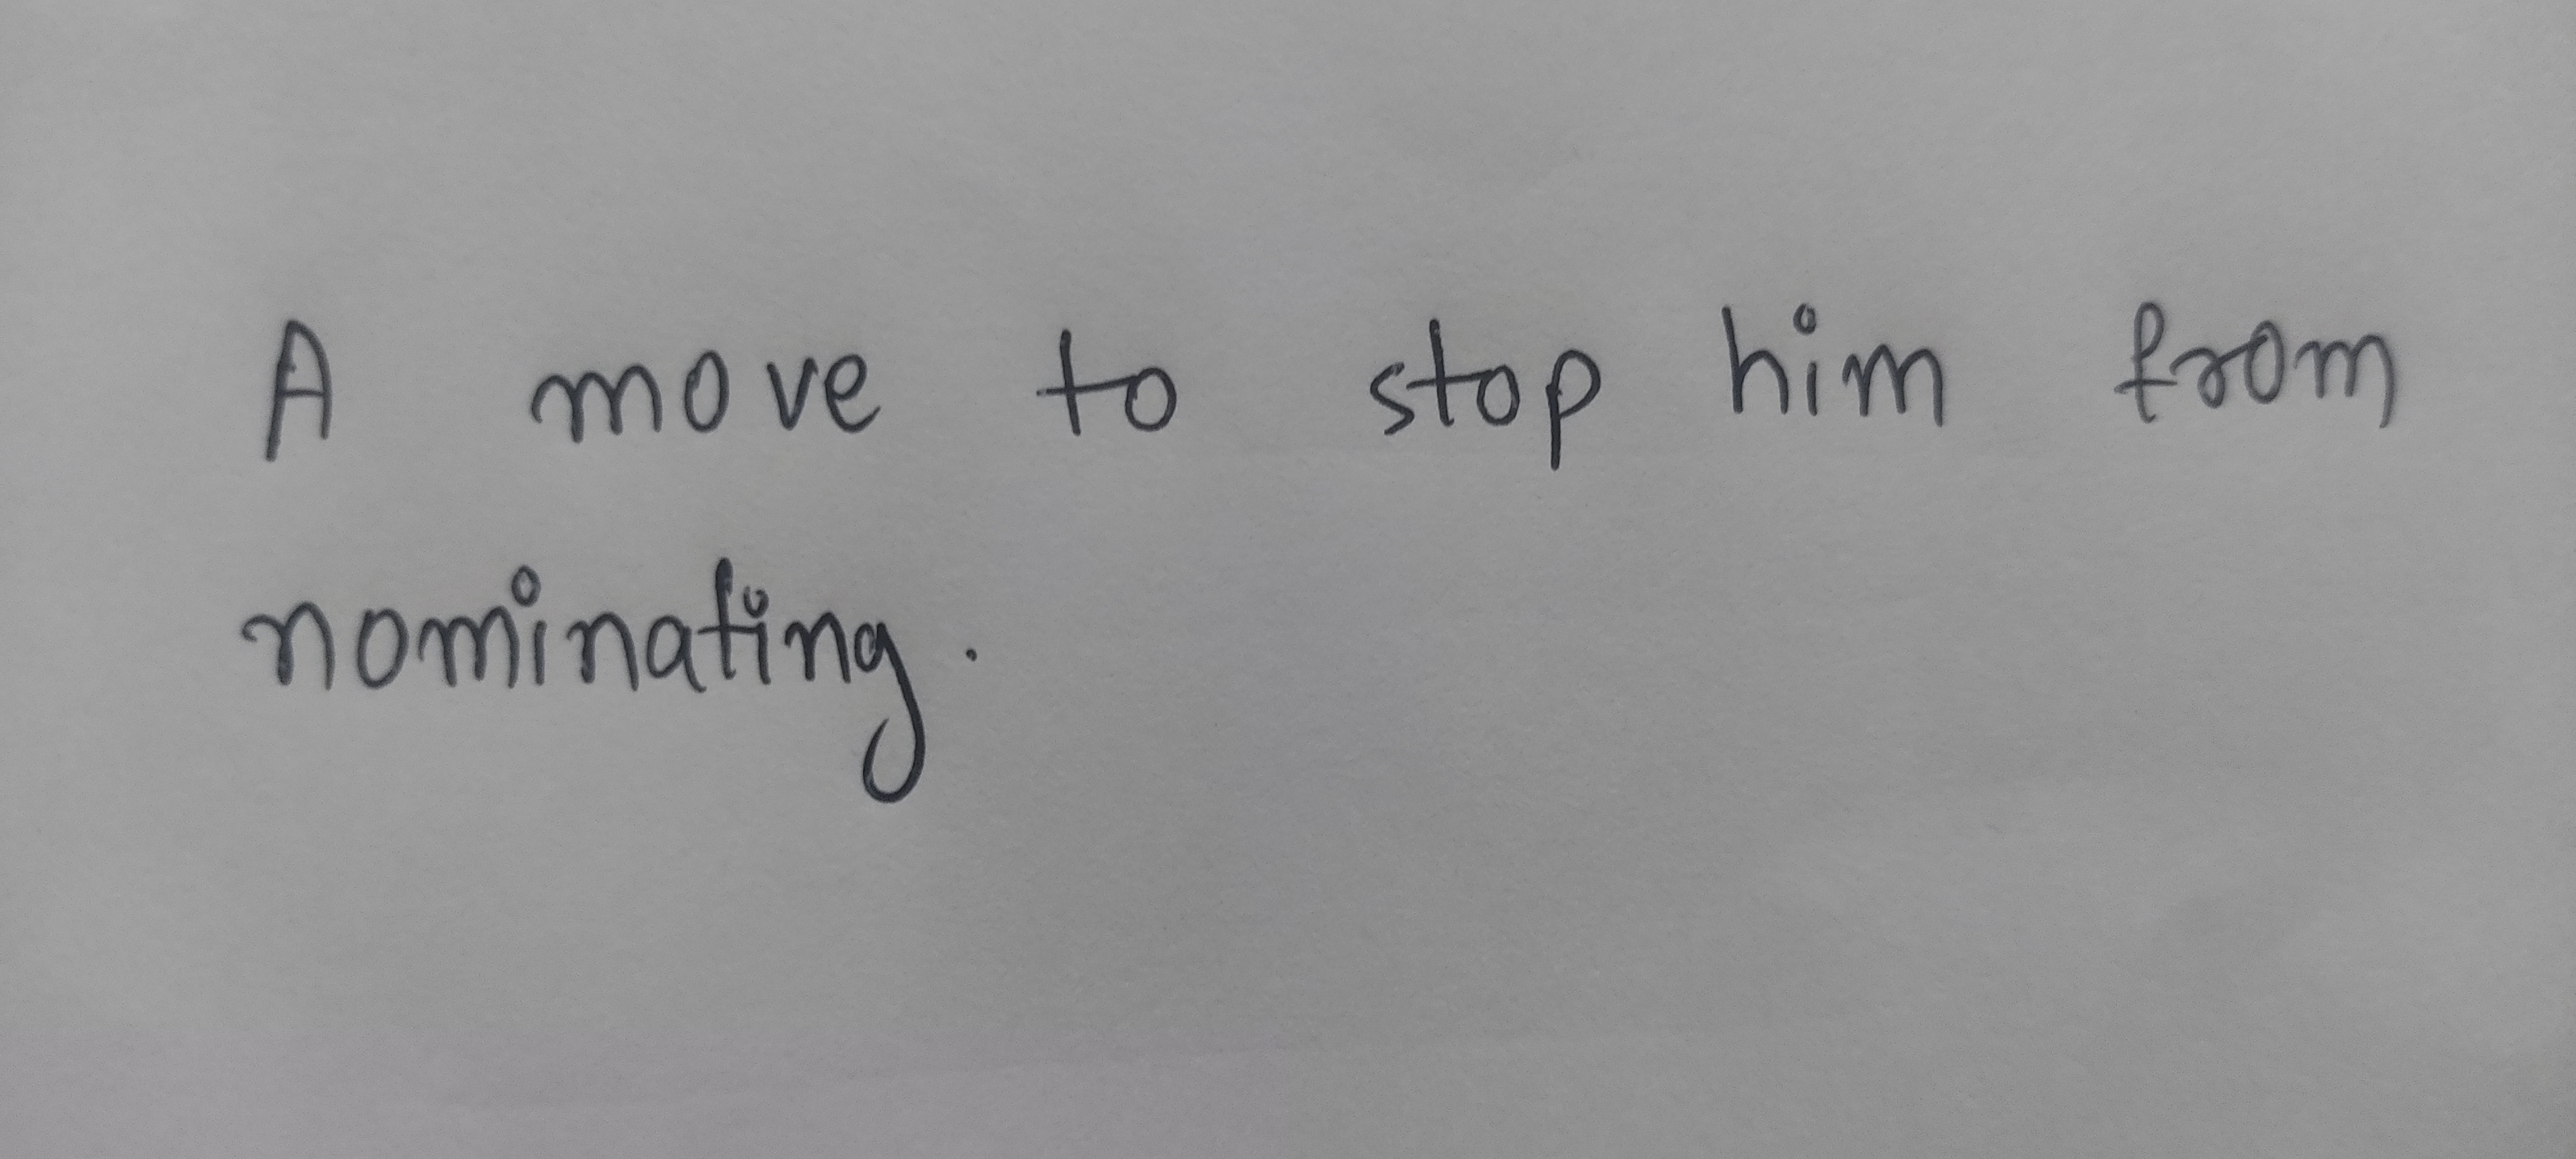 A move to stop him from
nominating.